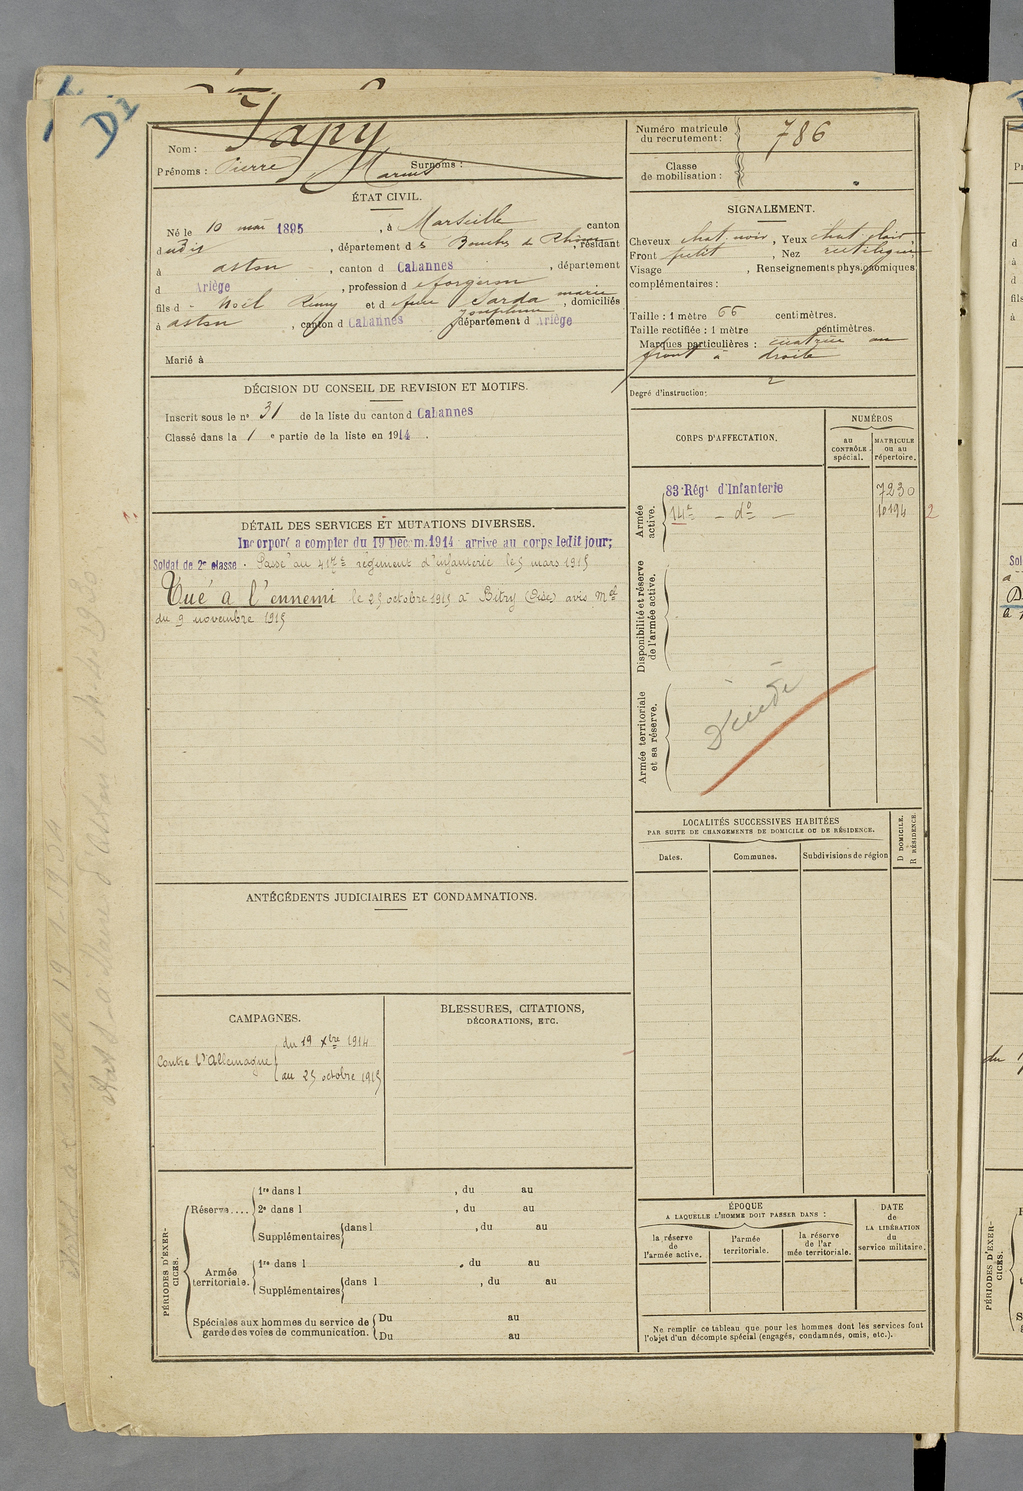 D1
Nom : Papy
Prénoms : Pierre Marius Surnoms :
Numéro matricule du recrutement : 786
Classe de mobilisation :
ÉTAT CIVIL.
Né le 10 mai 1895, à Marseille canton
dudit, département des Bouches du Rhône, résidant
à aston, canton d Cabannes, département
d Ariège, profession d forgeron
fils d Noël Rémy et d Sarda marie Joséphine, domiciliés
à aston, canton d Cabannes département d Ariège
Marié à
SIGNALEMENT.
Cheveux chat. noir, Yeux chat. clair
Front petit, Nez rectiligne
Visage , Renseignements physionomiques
complémentaires :
Taille : 1 mètre 66 centimètres.
Taille rectifiée : 1 mètre centimètres.
Marques particulières : cicatrice au
front à droite
Degré d'instruction: 2
DÉCISION DU CONSEIL DE REVISION ET MOTIFS.
Inscrit sous le nº 31 de la liste du canton d Cabannes
Classé dans la 1 e partie de la liste en 1914.
CORPS D'AFFECTATION.
NUMÉROS
au CONTRÔLE spécial.
MATRICULE ou au répertoire.
Armée active.
83e Régt d'Infanterie 7230
14e - do - 10194 2
Disponibilité et réserve de l'armée active.
Armée territoriale et sa réserve.
Décédé
DÉTAIL DES SERVICES ET MUTATIONS DIVERSES.
Incorporé a compter du 19 Décem. 1914 arrive au corps ledit jour;
Soldat de 2e classe. Passé au régiment d'infanterie le 5 mars 1915
Tué à l'ennemi le 25 octobre 1915 à Bitry (Oise) avis Mel
du 9 novembre 1915
LOCALITÉS SUCCESSIVES HABITÉES
PAR SUITE DE CHANGEMENTS DE DOMICILE OU DE RÉSIDENCE.
D DOMICILE.
R RÉSIDENCE.
Dates. Communes. Subdivisions de région
ANTÉCÉDENTS JUDICIAIRES ET CONDAMNATIONS.
CAMPAGNES.
Contre l'Allemagne
du 19 Xbre 1914
au 25 octobre 1915
BLESSURES, CITATIONS,
DÉCORATIONS, ETC.
PÉRIODES D'EXERCICES.
Réserve....
1re dans l , du au
2e dans l , du au
Supplémentaires dans l , du au
Armée territoriale.
1re dans l , du au
Supplémentaires dans l , du au
Spéciales aux hommes du service de
garde des voies de communication.
Du au
Du au
ÉPOQUE
A LAQUELLE L'HOMME DOIT PASSER DANS :
la réserve de l'armée active.
l'armée territoriale.
la réserve de l'armée territoriale.
DATE
de
LA LIBÉRATION
du
service militaire.
Ne remplir ce tableau que pour les hommes dont les services font
l'objet d'un décompte spécial (engagés, condamnés, omis, etc.).